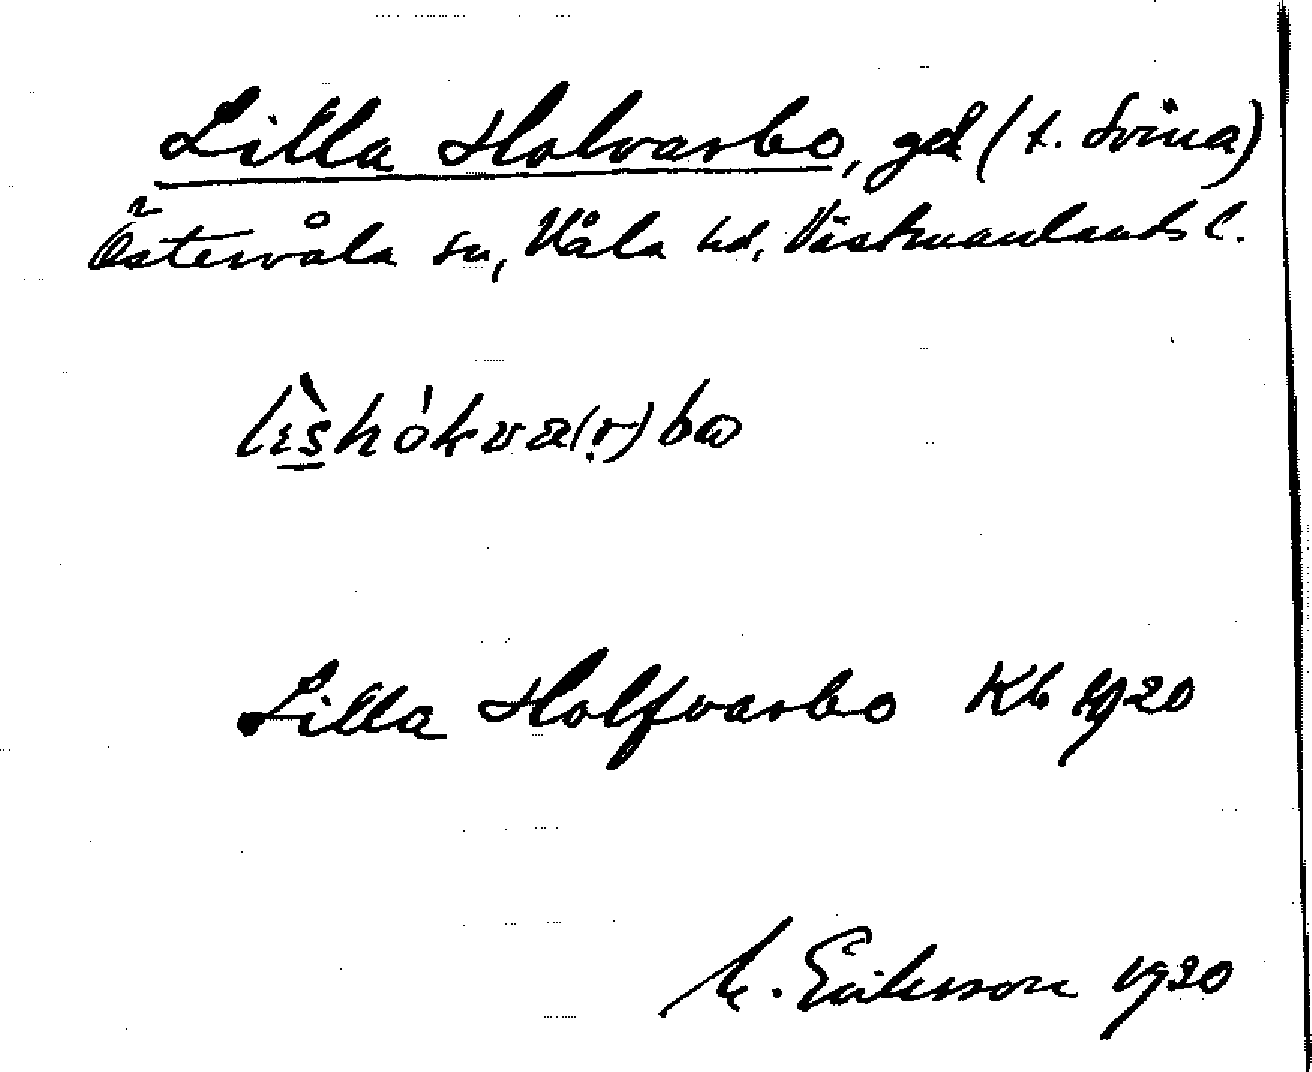 Lilla Holvarbo, gd (t. Svina)
Östervåla sn, Våla hd, Västmanlands l.
Lilla Holfvarbo Kb 1920
M. Eriksson 1920